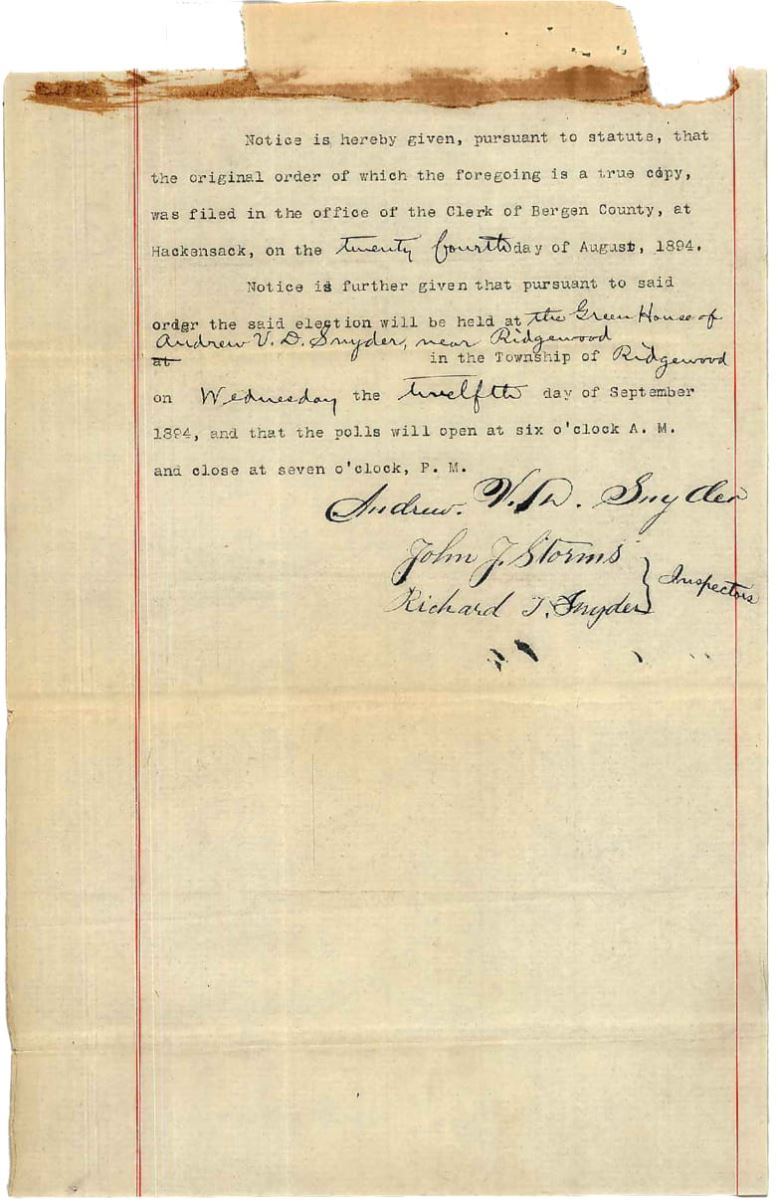 Notice is hereby given, pursuant to statute, that
the original order of which the foregoing is a true copy,
was filed in the office of the Clerk of Bergen County, at
Hackensack, on the twenty fourth day of August, 1894.
Notice is further given that pursuant to said
order the said election will be held at the Green House of
Andrew V. D. Snyder, near Ridgewood
at in the Township of Ridgewood
on Wednesday the twelfth day of September
1894, and that the polls will open at six o'clock A. M.
and close at seven o'clock, P. M.
Andrew. V. D. Snyder
John J. Storms
Inspectors
Richard T. Snyder